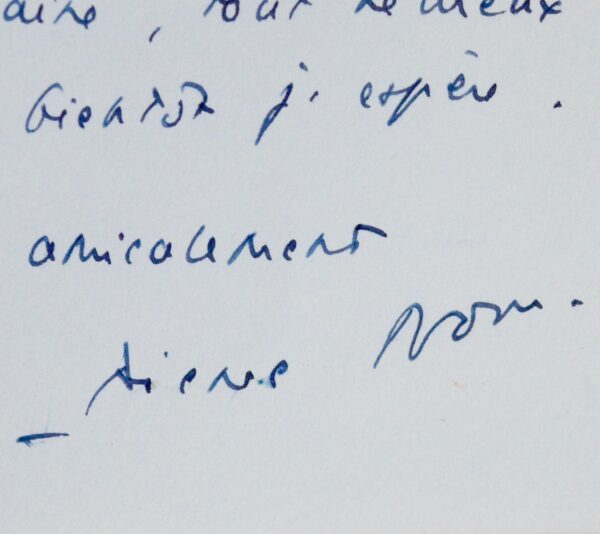 aire, tout le mieux
bientôt j'espère.
amicalement
Pierre